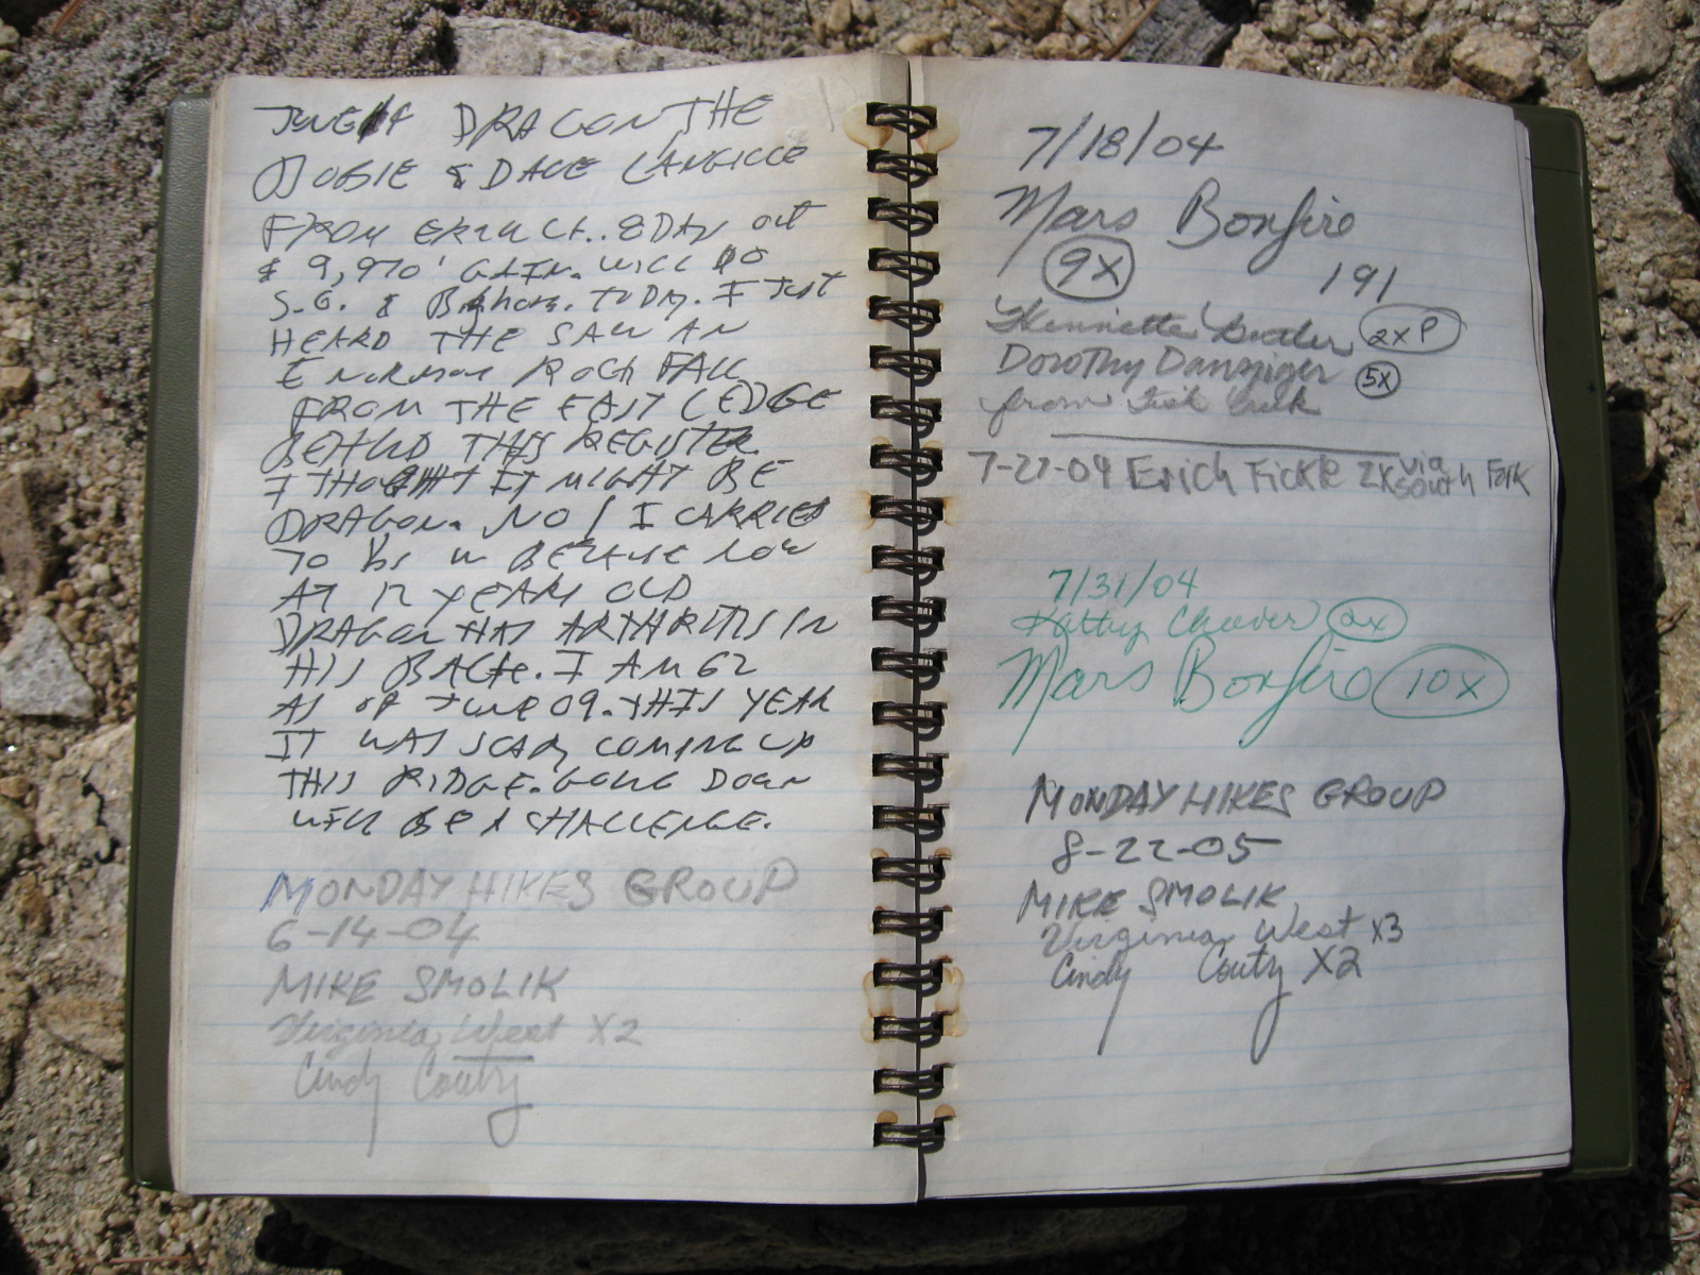 DRAGON THE
DOGIE & DAVE LANGILLE
FROM CK.. 8 DAY out
& 9,970' GAIN. WILL DO
S.G. & TODAY. I JUST
HEARD THE SAW AN
ROCK FALL
FROM THE EAST LEDGE
BEHIND THIS REGISTER
I THOUGHT IT MIGHT BE
DRAGON. NO! I CARRIED
AT 12 YEARS OLD
DRAGON HAS ARTHRITIS IN
HIS BACK. I AM 62
AS OF JUNE 09. THIS YEAR
IT WAS SCARY COMING UP
THIS RIDGE. GOING DOWN
WILL BE A CHALLENGE.
MONDAY HIKES GROUP
6-14-04
MIKE SMOLIK
Virginia West X2
Cindy Couty
7/18/04
Mars Bonfire
9X
191
Henriette 2XP
Dorothy Danziger 5X
from Fish Creek
7-27-04 Erich Fickle 2X via South Fork
7/31/04
Kathy Cheever 2x
Mars Bonfire 10x
MONDAY HIKES GROUP
8-22-05
MIKE SMOLIK
Virginia West X3
Cindy Couty X2